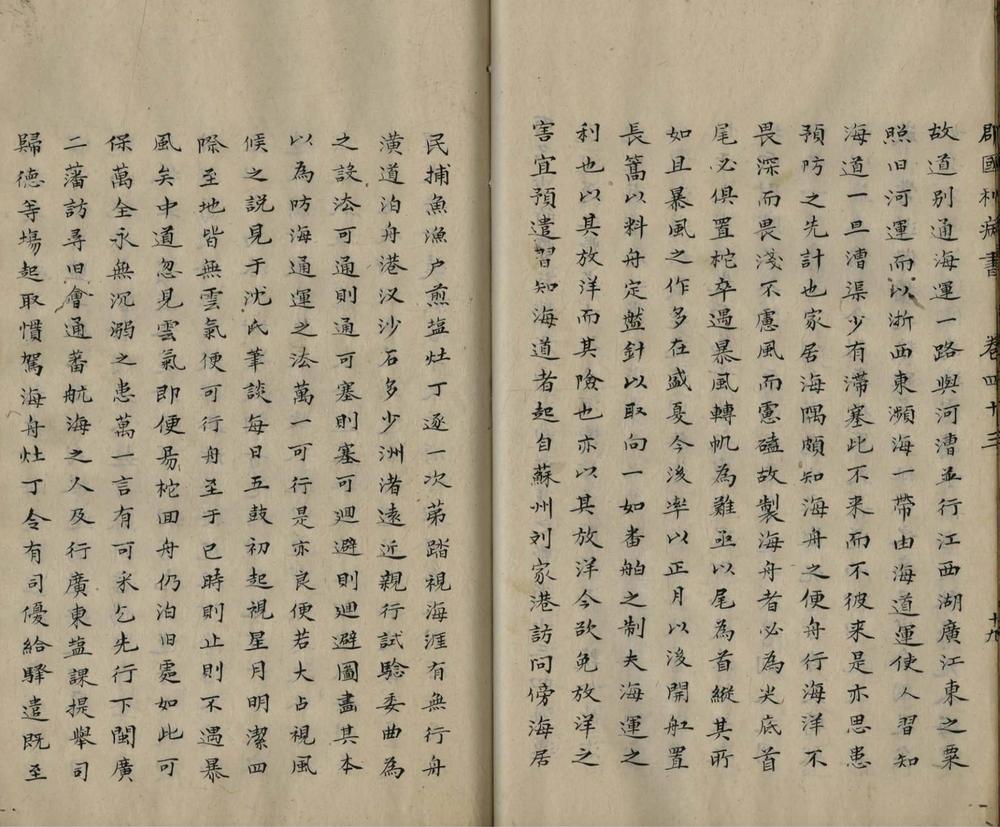 郡國利病書 卷四十三 十九
故道别通海運一路與河漕並行江西湖廣江東之粟
照旧河運而以浙西東瀕海一帶由海道運使人習知
海道一旦漕渠少有滯塞此不来而不彼来是亦思患
預防之先計也家居海隅頗知海舟之便舟行海洋不
畏深而畏淺不慮風而慮礚故製海舟者必為尖底首
尾必俱置柁卒遇暴風轉帆為難亟以尾為首縱其所
如且暴風之作多在盛夏今後率以正月以後開舡置
長篙以料舟定盤針以取向一如番舶之制夫海運之
利也以其放洋而其險也亦以其放洋今欲免放洋之
害宜預遣習知海道者起自蘇州刘家港訪問傍海居
民捕魚漁户煎塩灶丁逐一次第踏視海涯有無行舟
潢道泊舟港汊沙石多少洲渚遠近親行試驗委曲為
之設法可通則通可塞則塞可廻避則廻避圖畫其本
以為防海通運之法萬一可行是亦良便若大占視風
候之説見于沈氏筆談每日五鼓初起視星月明潔四
際至地皆無雲氣便可行舟至于巳時則止則不遇暴
風矣中道忽見雲氣即便昜柁回舟仍泊旧處如此可
保萬全永無沉溺之患萬一言有可采乞先行下閩廣
二藩訪尋旧會通蕃航海之人及行廣東塩課提舉司
歸德等場起取慣駕海舟灶丁令有司優給驛遣既至